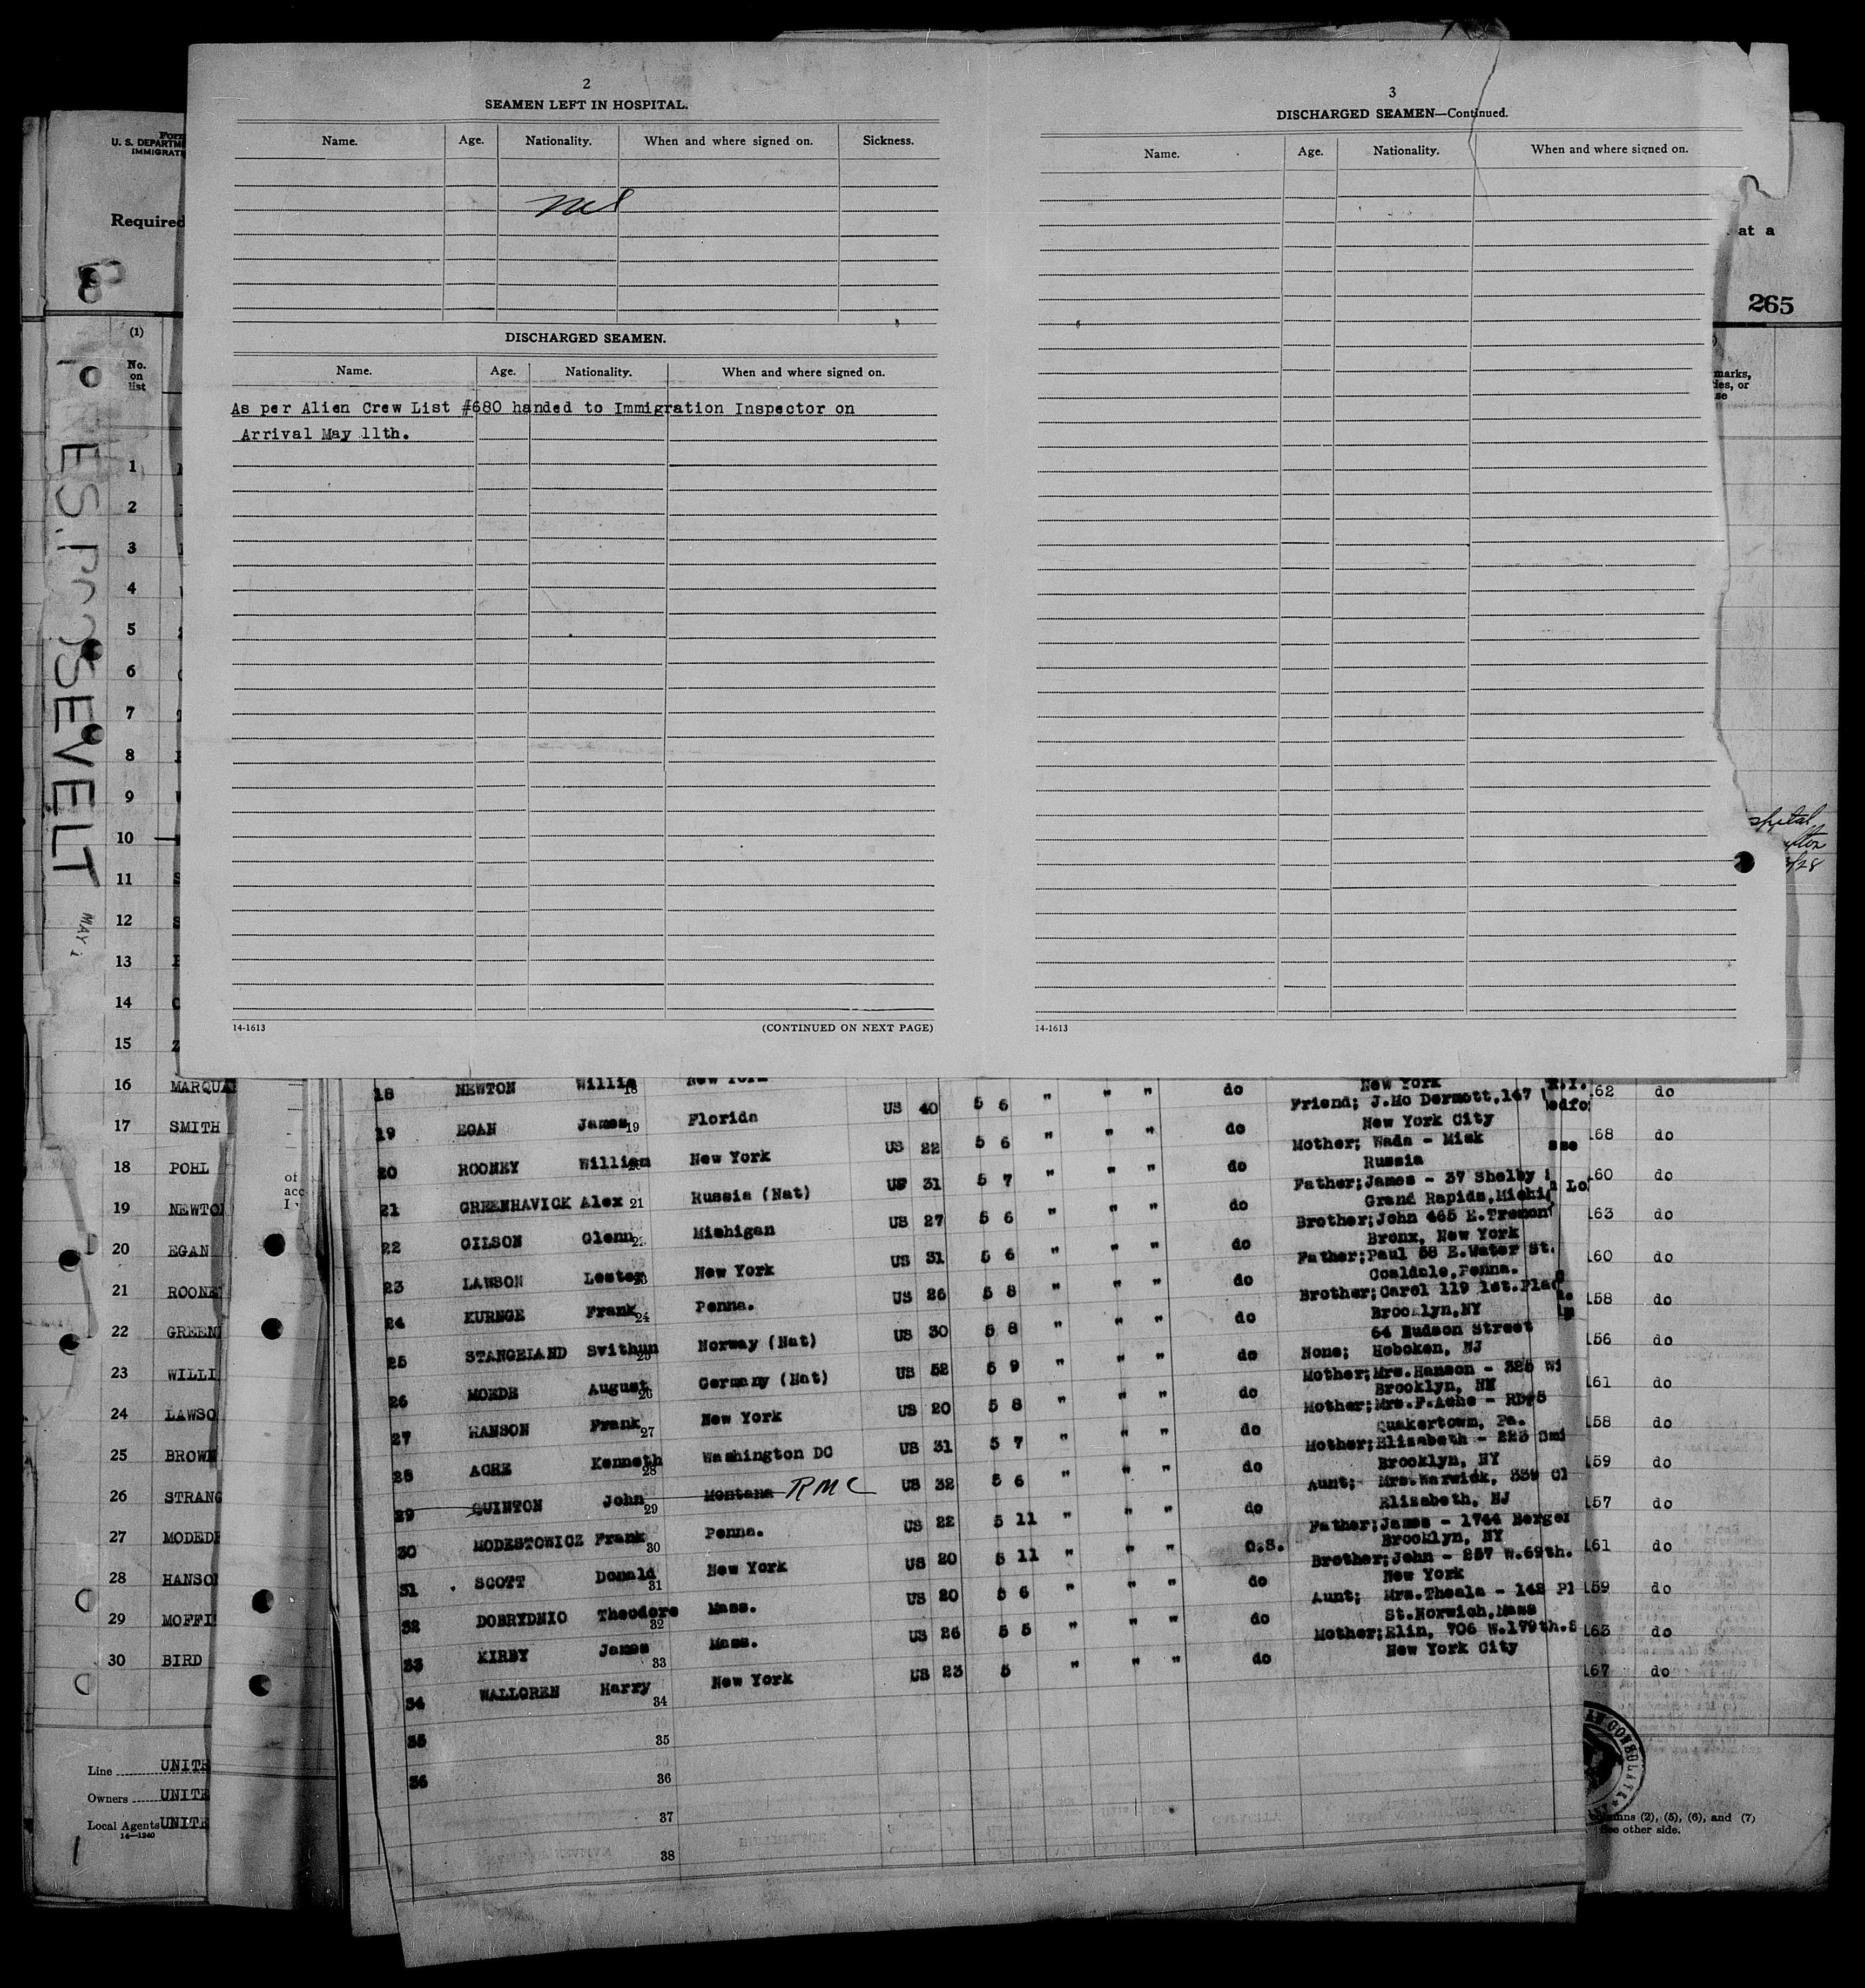 2
SEAMEN LEFT IN HOSPITAL.
Name. Age. Nationality. When and where signed on. Sickness.
nil
DISCHARGED SEAMEN.
Name. Age. Nationality. When and where signed on.
As per Alien Crew List #680 handed to Immigration Inspector on
Arrival May 11th.
14-1613 (CONTINUED ON NEXT PAGE)
3
DISCHARGED SEAMEN—Continued.
Name. Age. Nationality. When and where signed on.
14-1613
U. S. DEPARTM
IMMIGRAT
Required
at a
265
(1)
No.
on
list
marks,
se
SEVELT
MAY 1
1
2
3
4
5
6
7
8
9
10
11
12
13
14
15
16 MARQUA
17 SMITH
18 POHL
19 NEWTON
20 EGAN
21 ROONE
22 GREEN
23 WILLI
24 LAWSO
25 BROWN
26 STRANG
27 MODEDE
28 HANSO
29 MOFFI
30 BIRD
Line UNITE
Owners UNITE
Local Agents UNITE
14-1240
of
acc
18 NEWTON Willie 18 New York
New York
19 EGAN James 19 Florida US 40 5 6 " " " do Friend; J.Mc Dermott,147
New York City
20 ROONEY William New York US 22 5 6 " " " do Mother; Wada - Misk
Russia
21 GREENHAVICK Alex 21 Russia (Nat) US 31 5 7 " " " do Father;James - 37 Shelby
Grand Rapids,Michi
22 GILSON Glenn Michigan US 27 5 6 " " " do Brother;John 465 E.Tremon
Bronx, New York
23 LAWSON Lester New York US 31 5 6 " " " do Father;Paul 58 E.Water St.
Coaldale,Penna.
24 KURNGE Frank 24 Penna. US 26 5 8 " " " do Brother;Carol 119 1st.Plac
Brooklyn,NY
64 Hudson Street
25 STANGELAND Svithun 25 Norway (Nat) US 30 5 8 " " " do None; Hoboken, NJ
26 MOEDE August 26 Germany (Nat) US 52 5 9 " " " do Mother;Mrs.Hanson - 325 Wi
Brooklyn, NY
27 HANSON Frank 27 New York US 20 5 8 " " " do Mother;Mrs.F.Ache - RD#5
Quakertown, Pa.
28 ACHE Kenneth 28 Washington DC US 31 5 7 " " " do Mother;Elizabeth - 223 Smi
Brooklyn, NY
29 QUINTON John 29 Montana RMC US 32 5 6 " " " do Aunt; Mrs.Warwick, 339 Cl
Elizabeth, NJ
30 MODESTOWICZ Frank 30 Penna. US 22 5 11 " " " do Father;James - 1744 Bergen
Brooklyn, NY
31 SCOTT Donald 31 New York US 20 5 11 " " " O.S. Brother;John - 257 W.69th.
New York
32 DOBRYDNIO Theodore 32 Mass. US 20 5 6 " " " do Aunt; Mrs.Thesla - 148 Pl
St.Norwich,Mass
33 KIRBY James 33 Mass. US 26 5 5 " " " do Mother;Elin, 706 W.179th.S
New York City
34 WALLGREN Harry 34 New York US 23 5 " " " do
35 35
36 36
37
38
R.I.
edfo
sse
Lo
162 do
168 do
160 do
163 do
160 do
158 do
156 do
161 do
158 do
159 do
157 do
161 do
159 do
165 do
167 do
AN CONSULATE
columns (2), (5), (6), and (7)
See other side.